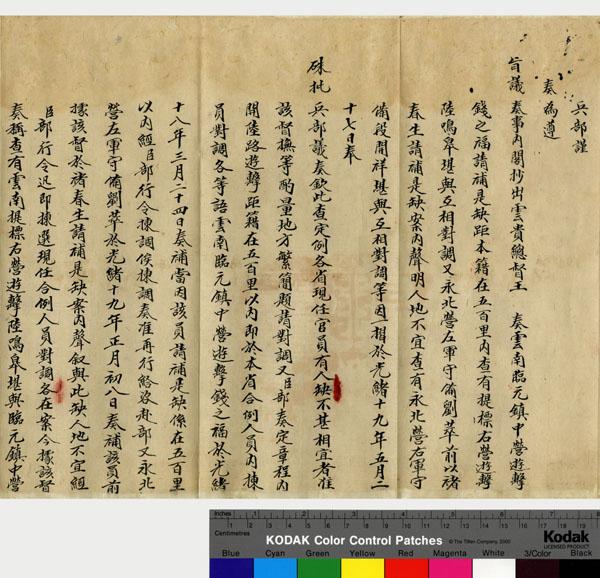 兵部謹
奏為遵
旨議奏事內閣抄出雲貴總督王　奏雲南臨元鎮中營遊擊
錢之福請補是缺距本籍在五百里內查有提標右營遊擊
陸鳴皐堪與互相對調又永北營左軍守備劉萃前以褚
春生請補是缺案內聲明人地不宜查有永北營右軍守
備段開祥堪與互相對調等因一摺於光緒十九年五月二
十七日奉
硃批
兵部議奏欽此查定例各省現任官員有人缺不甚相宜者准
該督撫等酌量地方繁簡題請對調又臣部奏定章程內
開陸路遊擊距籍在五百里以內即於本省合例人員內揀
員對調各等語雲南臨元鎮中營遊擊錢之福於光緒
十八年三月二十四日奏補當因該員請補是缺係在五百里
以內經臣部行令揀調俟揀調奏准再行給咨赴部又永北
營左軍守備劉萃於光緒十九年正月初八日奏補該員前
據該督於褚春生請補是缺案內聲敘與此缺人地不宜經
臣部行令迅即揀選現任合例人員對調各在案今據該督
奏稱查有雲南提標右營遊擊陸鳴皐堪與臨元鎮中營
Inches
Centimetres
KODAK Color Control Patches
© The Tiffen Company, 2000
Kodak
LICENSED PRODUCT
Blue Cyan Green Yellow Red Magenta White 3/Color Black